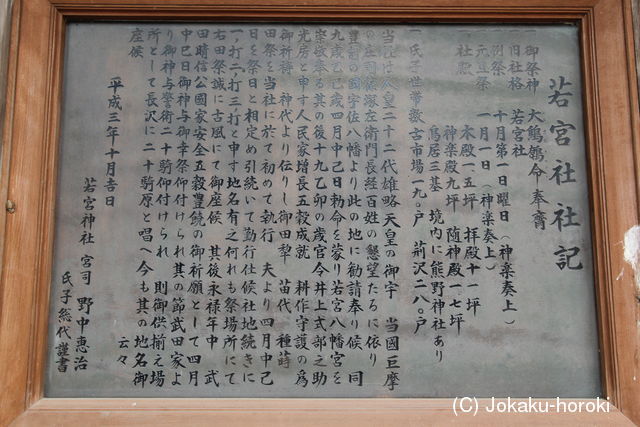 若宮社社記
一 御祭神 大鷦鷯命 奉齊
一 旧社格 若宮社
一 例祭 十月第一日曜日（神楽奏上）
一 元旦祭 一月一日（神楽奏上）
一 社殿 本殿一五坪 拝殿十一坪
神楽殿九坪 随神殿一七坪
鳥居三基 境内に熊野神社あり
一 氏子世帯数 古市場一九〇戸 荊沢二八〇戸
当社は人皇二十二代雄略天皇の御宇 当國巨摩
の庄司飯塚左衛門長経百姓の懇望たるに依り
豊前の國宇佐八幡より此の地に勧請奉り候 同
九歳乙巳歳四月中己日勅命を蒙り若宮八幡宮を
崇敬奉る其の後十九乙卯の歳官今井上式部之助
光房と申す人民家増長五穀成就 耕作守護の為
御祈祷 神代より伝りし御田犂 苗代 種蒔
田祭を当社に於て初めて執行 夫より四月中己
日を祭日と相定め引続いて勤行仕候社地続きに
一ノ打二ノ打三ノ打と申す地名有之何れも祭場所にて
右田祭誠に古風にて御座候 其後永禄年中 武
田晴信公國家安全五穀豊饒の御祈願として四月
中巳日御神与御幸祭仰付けられ其の節武田家よ
り御神与警術二十騎仰付けられ 則御供揃え場
所として長沢に二十騎原と唱へ今も其の地名御
座候 云々
平成三年十月吉日
若宮神社 宮司 野中恵治
氏子総代謹書
(C) Jokaku-horoki